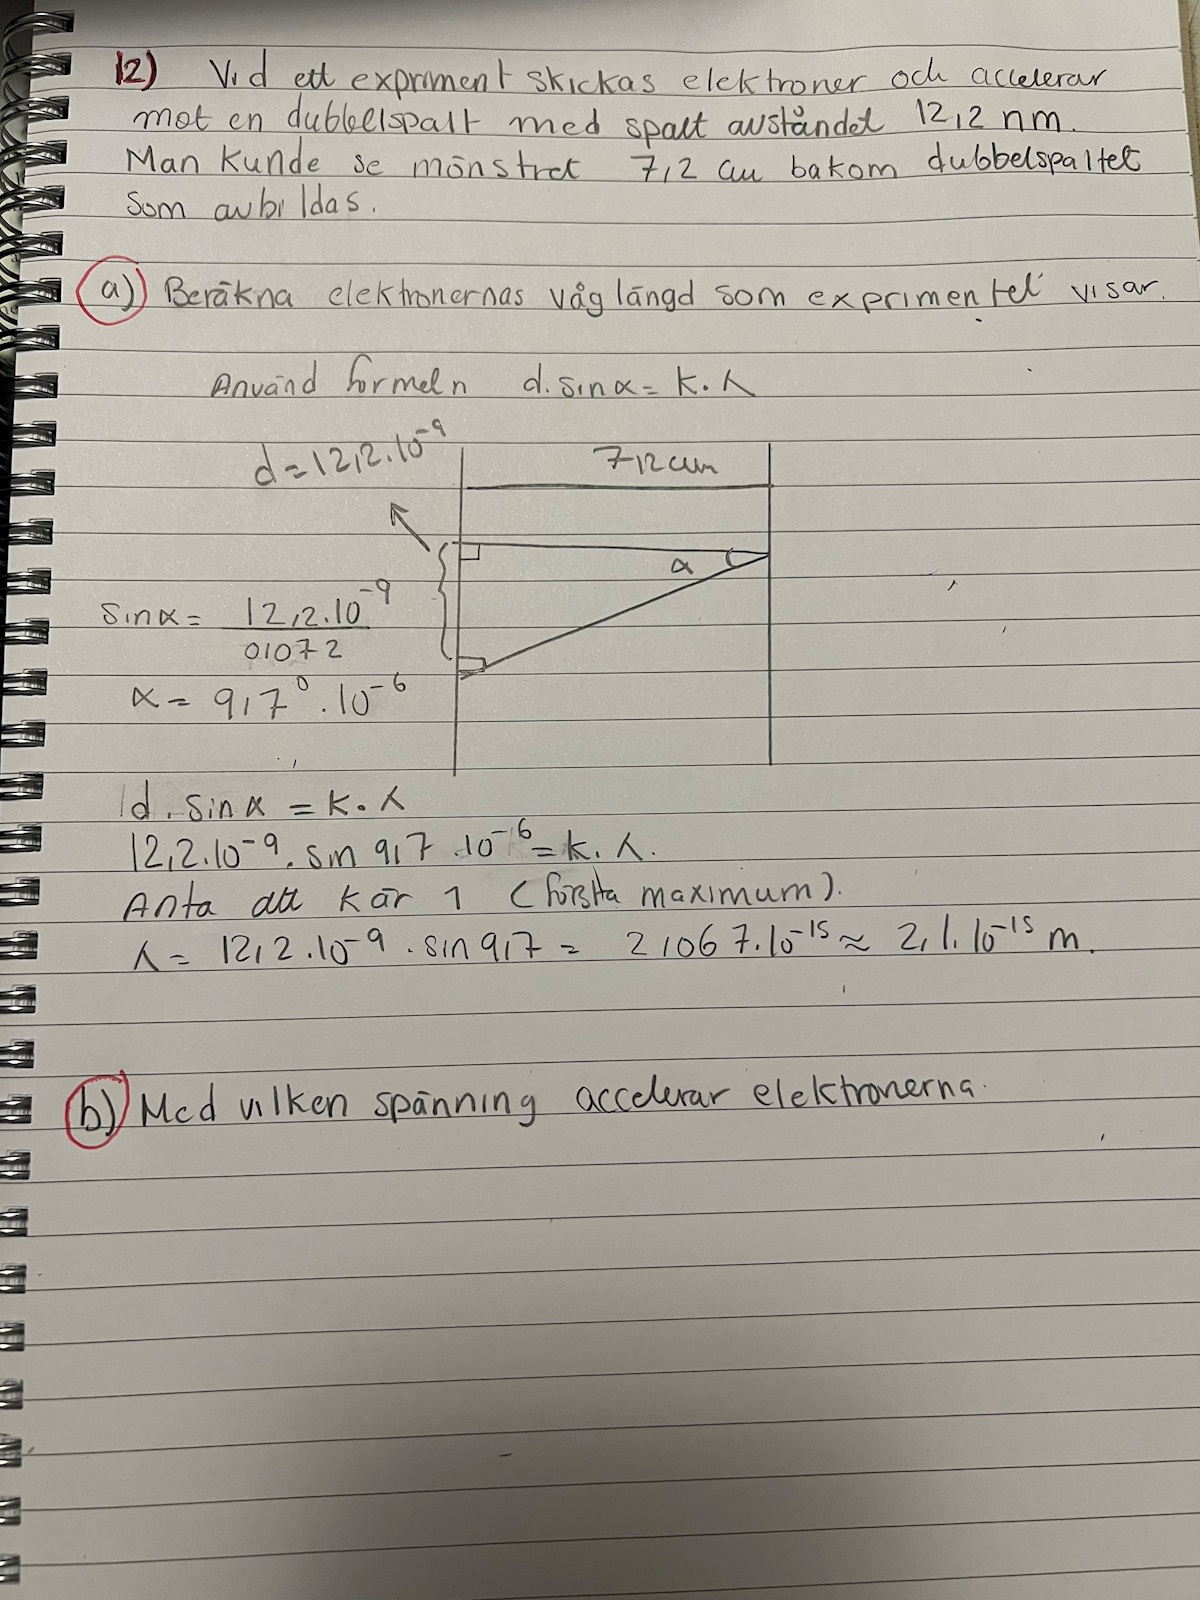 12) Vid ett expriment skickas elektroner och accelerar
mot en dubbelspalt med spalt avståndet 12,2 nm.
Man kunde se mönstret 7,2 cm bakom dubbelspaltet
som avbildas.
a) Beräkna elektronernas våglängd som exprimentet visar.
Använd formeln d. sinα = K. λ
d=12,2.10⁻⁹
7,2cm
α
sinα = 12,2.10⁻⁹ / 0,072
α = 9,7° .10⁻⁶
d. sin α = k. λ
12,2.10⁻⁹. sin 9,7 .10⁻⁶ = k. λ.
Anta att k är 1 (första maximum).
λ = 12,2.10⁻⁹ . sin 9,7 = 2,067.10⁻¹⁵ ≈ 2,1.10⁻¹⁵ m.
b) Med vilken spänning accelerar elektronerna.